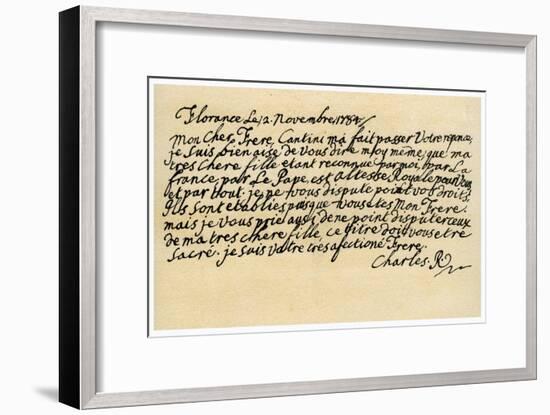 Florance Le 12. Novembre. 1784
Mon Cher Frere, Cantini ma fait passer Votre
je suis bien aise de vous dire moy meme, que ma
tres chere fille etant reconnue par moi, par La
france, par Le Pape est altesse Royale pour tous
et par tout je ne vous dispute point vos droits.
Ils sont etablies puisque vous etes Mon Frere.
mais je vous prie aussi de ne point disputer ceux
de ma tres chere fille ce titre doit vous etre
sacre. je suis votre tres afectioné Frere.
Charles. R.